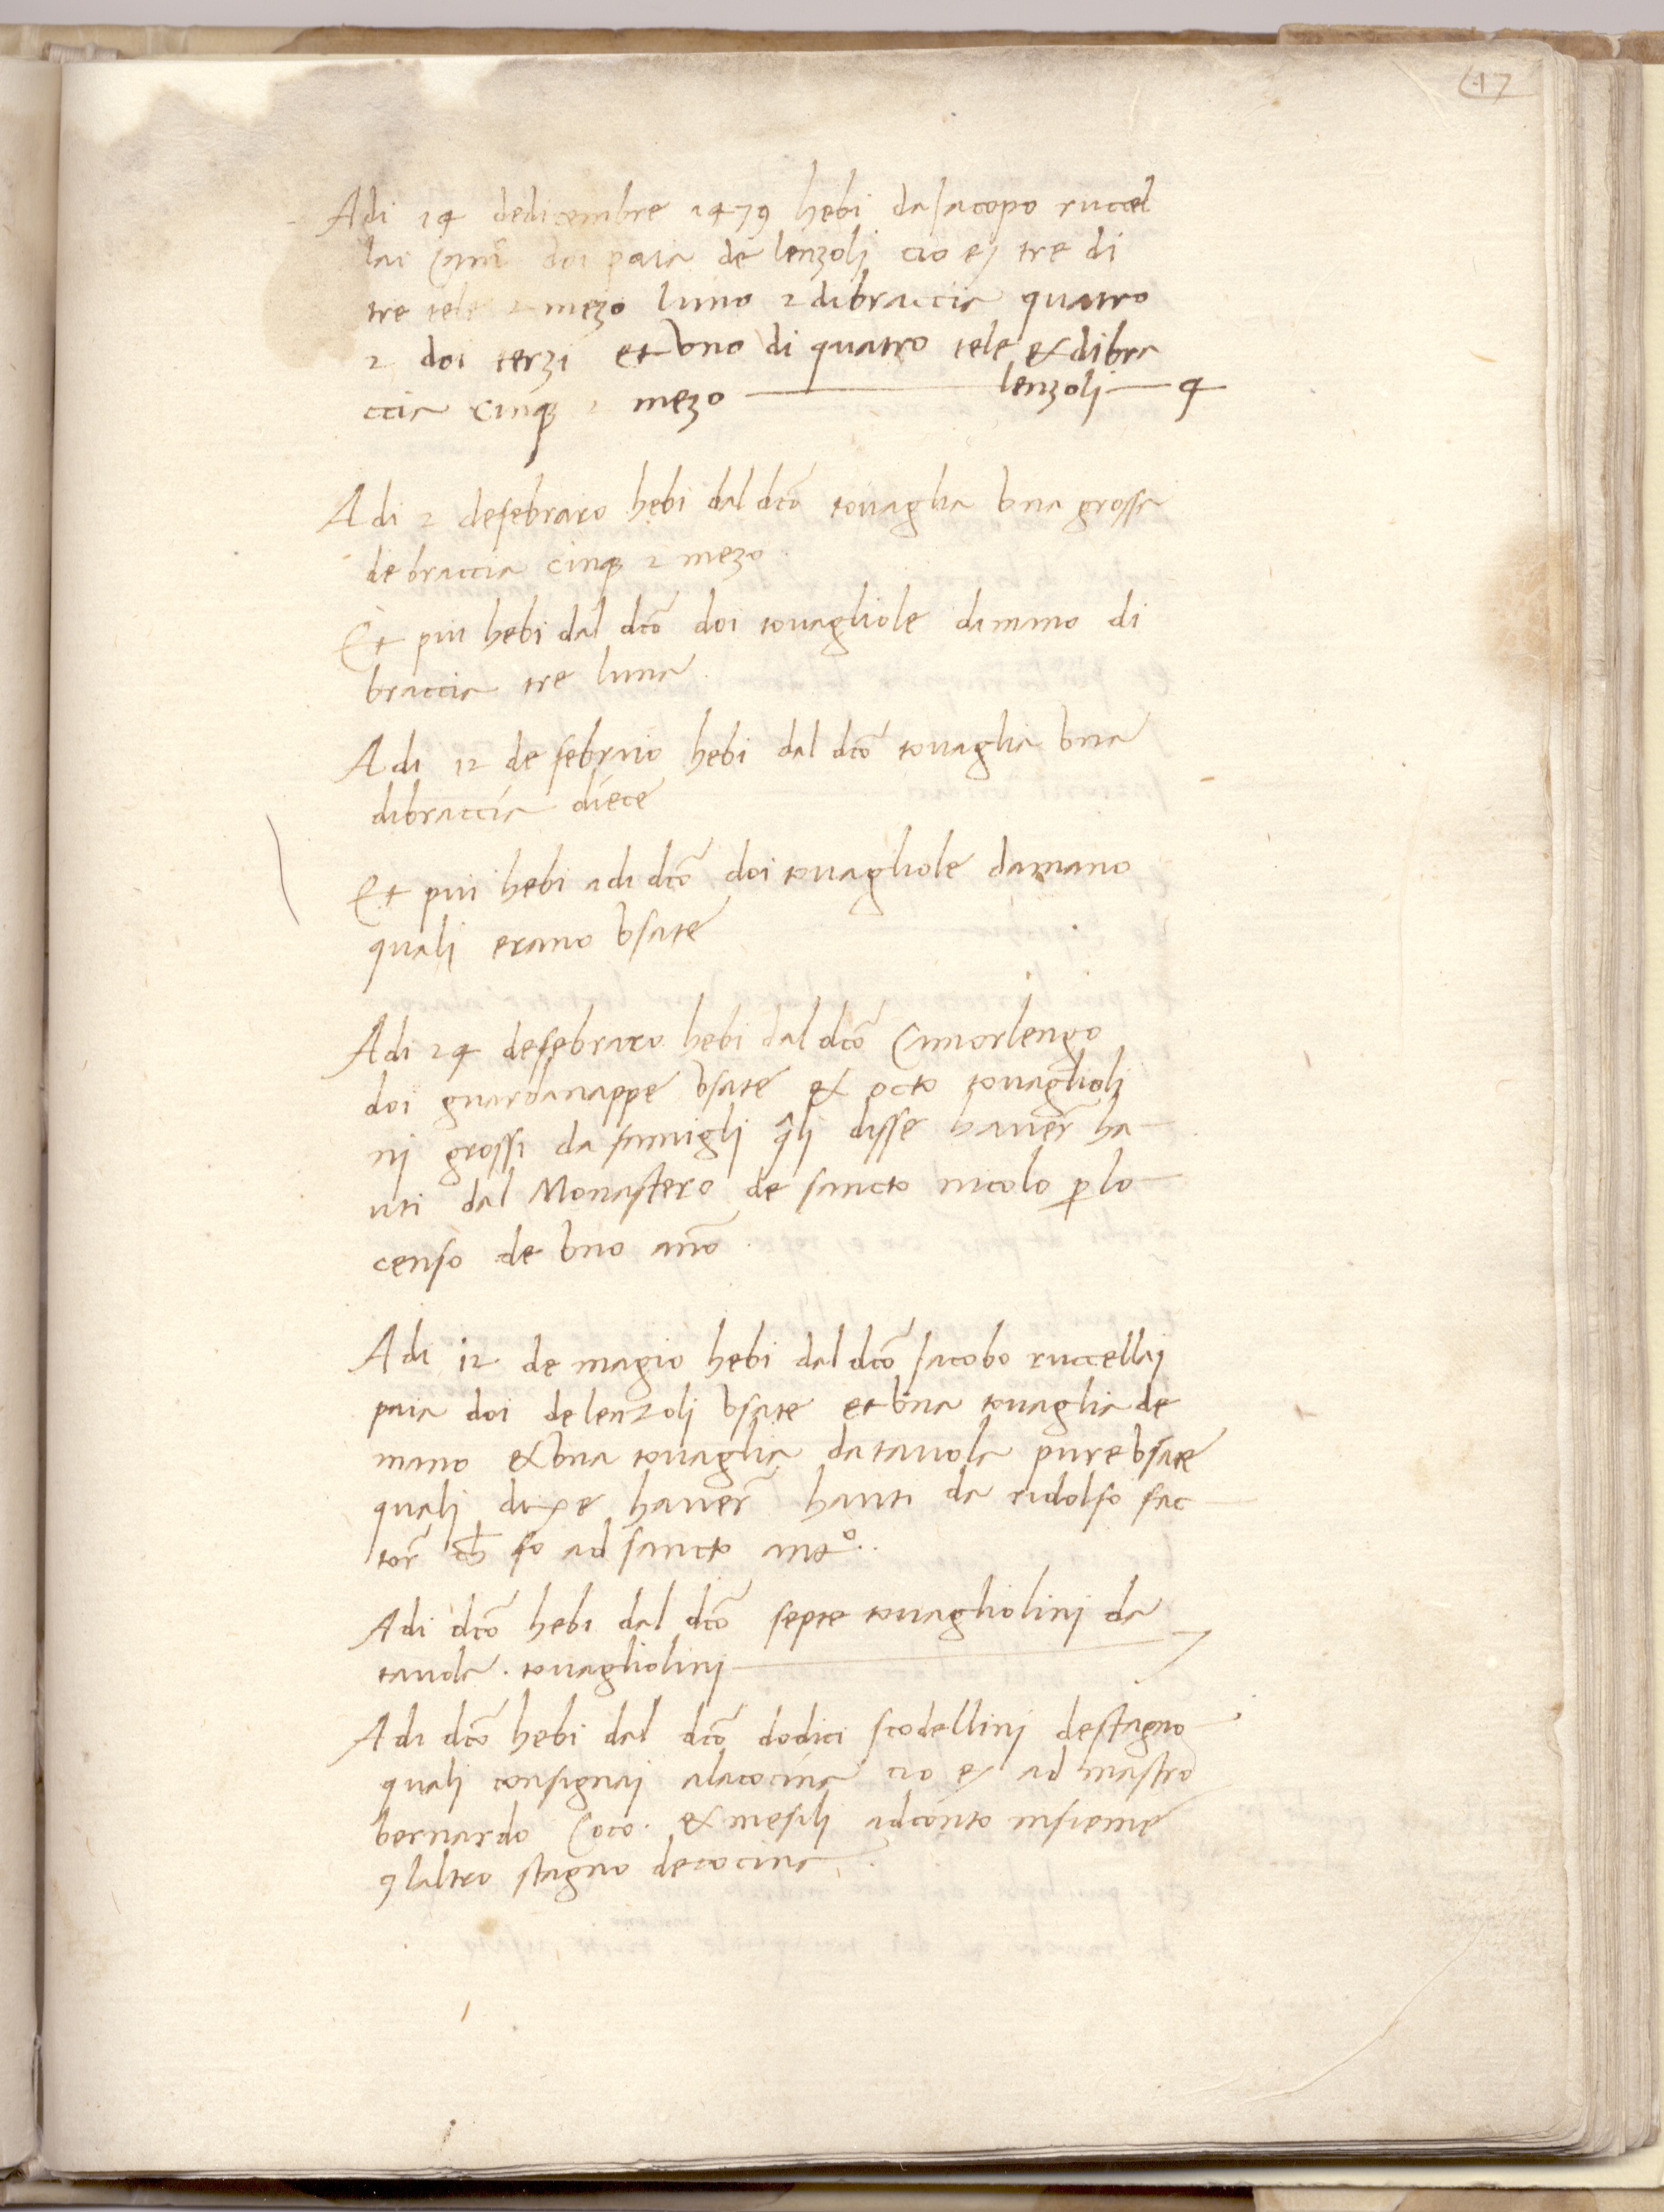 17
Adi 14 dedicembre 1479 hebi da Iacopo ruccel
lai Cam̄ doi paia de lenzoli cio e/ tre di
tre tele 2 mezo luno 2 dibraccia quatro
2 doi terzi et uno di quatro tele & dibra
ccia cinqꝫ 2 mezo lenzoli 4
Adi 2 defebraro hebi dal dc̄o touaglia una grossa
de braccia cinqꝫ 2 mezo
Et piu hebi dal dc̄o doi touagliole damano di
braccia tre luna
Adi 12 de febraio hebi dal dc̄o touaglia una
dibraccia diece
Et piu hebi adi dc̄o doi touagliole damano
quali erano usate
Adi 24 defebraro hebi dal dc̄o Camorlengo
doi guardanappe usate & octo touaglioli
nj grossi da famigli q̄li disse hauer̄ ha
uti dal Monastero de sancto nicolo ꝑ lo
censo de uno an̄o
Adi 12 de magio hebi dal dc̄o Iacobo ruccellaj
paia doi de lenzoli usate et una touaglia de
mano & una touaglia da tauola pure usate
quali dixe hauer̄ hauti da ridolfo fac
tor̄ ch̄ fo ad sancto antº.
Adi dc̄o hebi dal dc̄o septe touagliolinj da
tauola . touagliolinj 7
Adi dc̄o hebi dal dc̄o dodici scodellinj destagno
quali consignaj alacocina cio e/ ad mastro
bernardo Coco. & mesili adconto insieme
ꝯ laltro stagno decocina